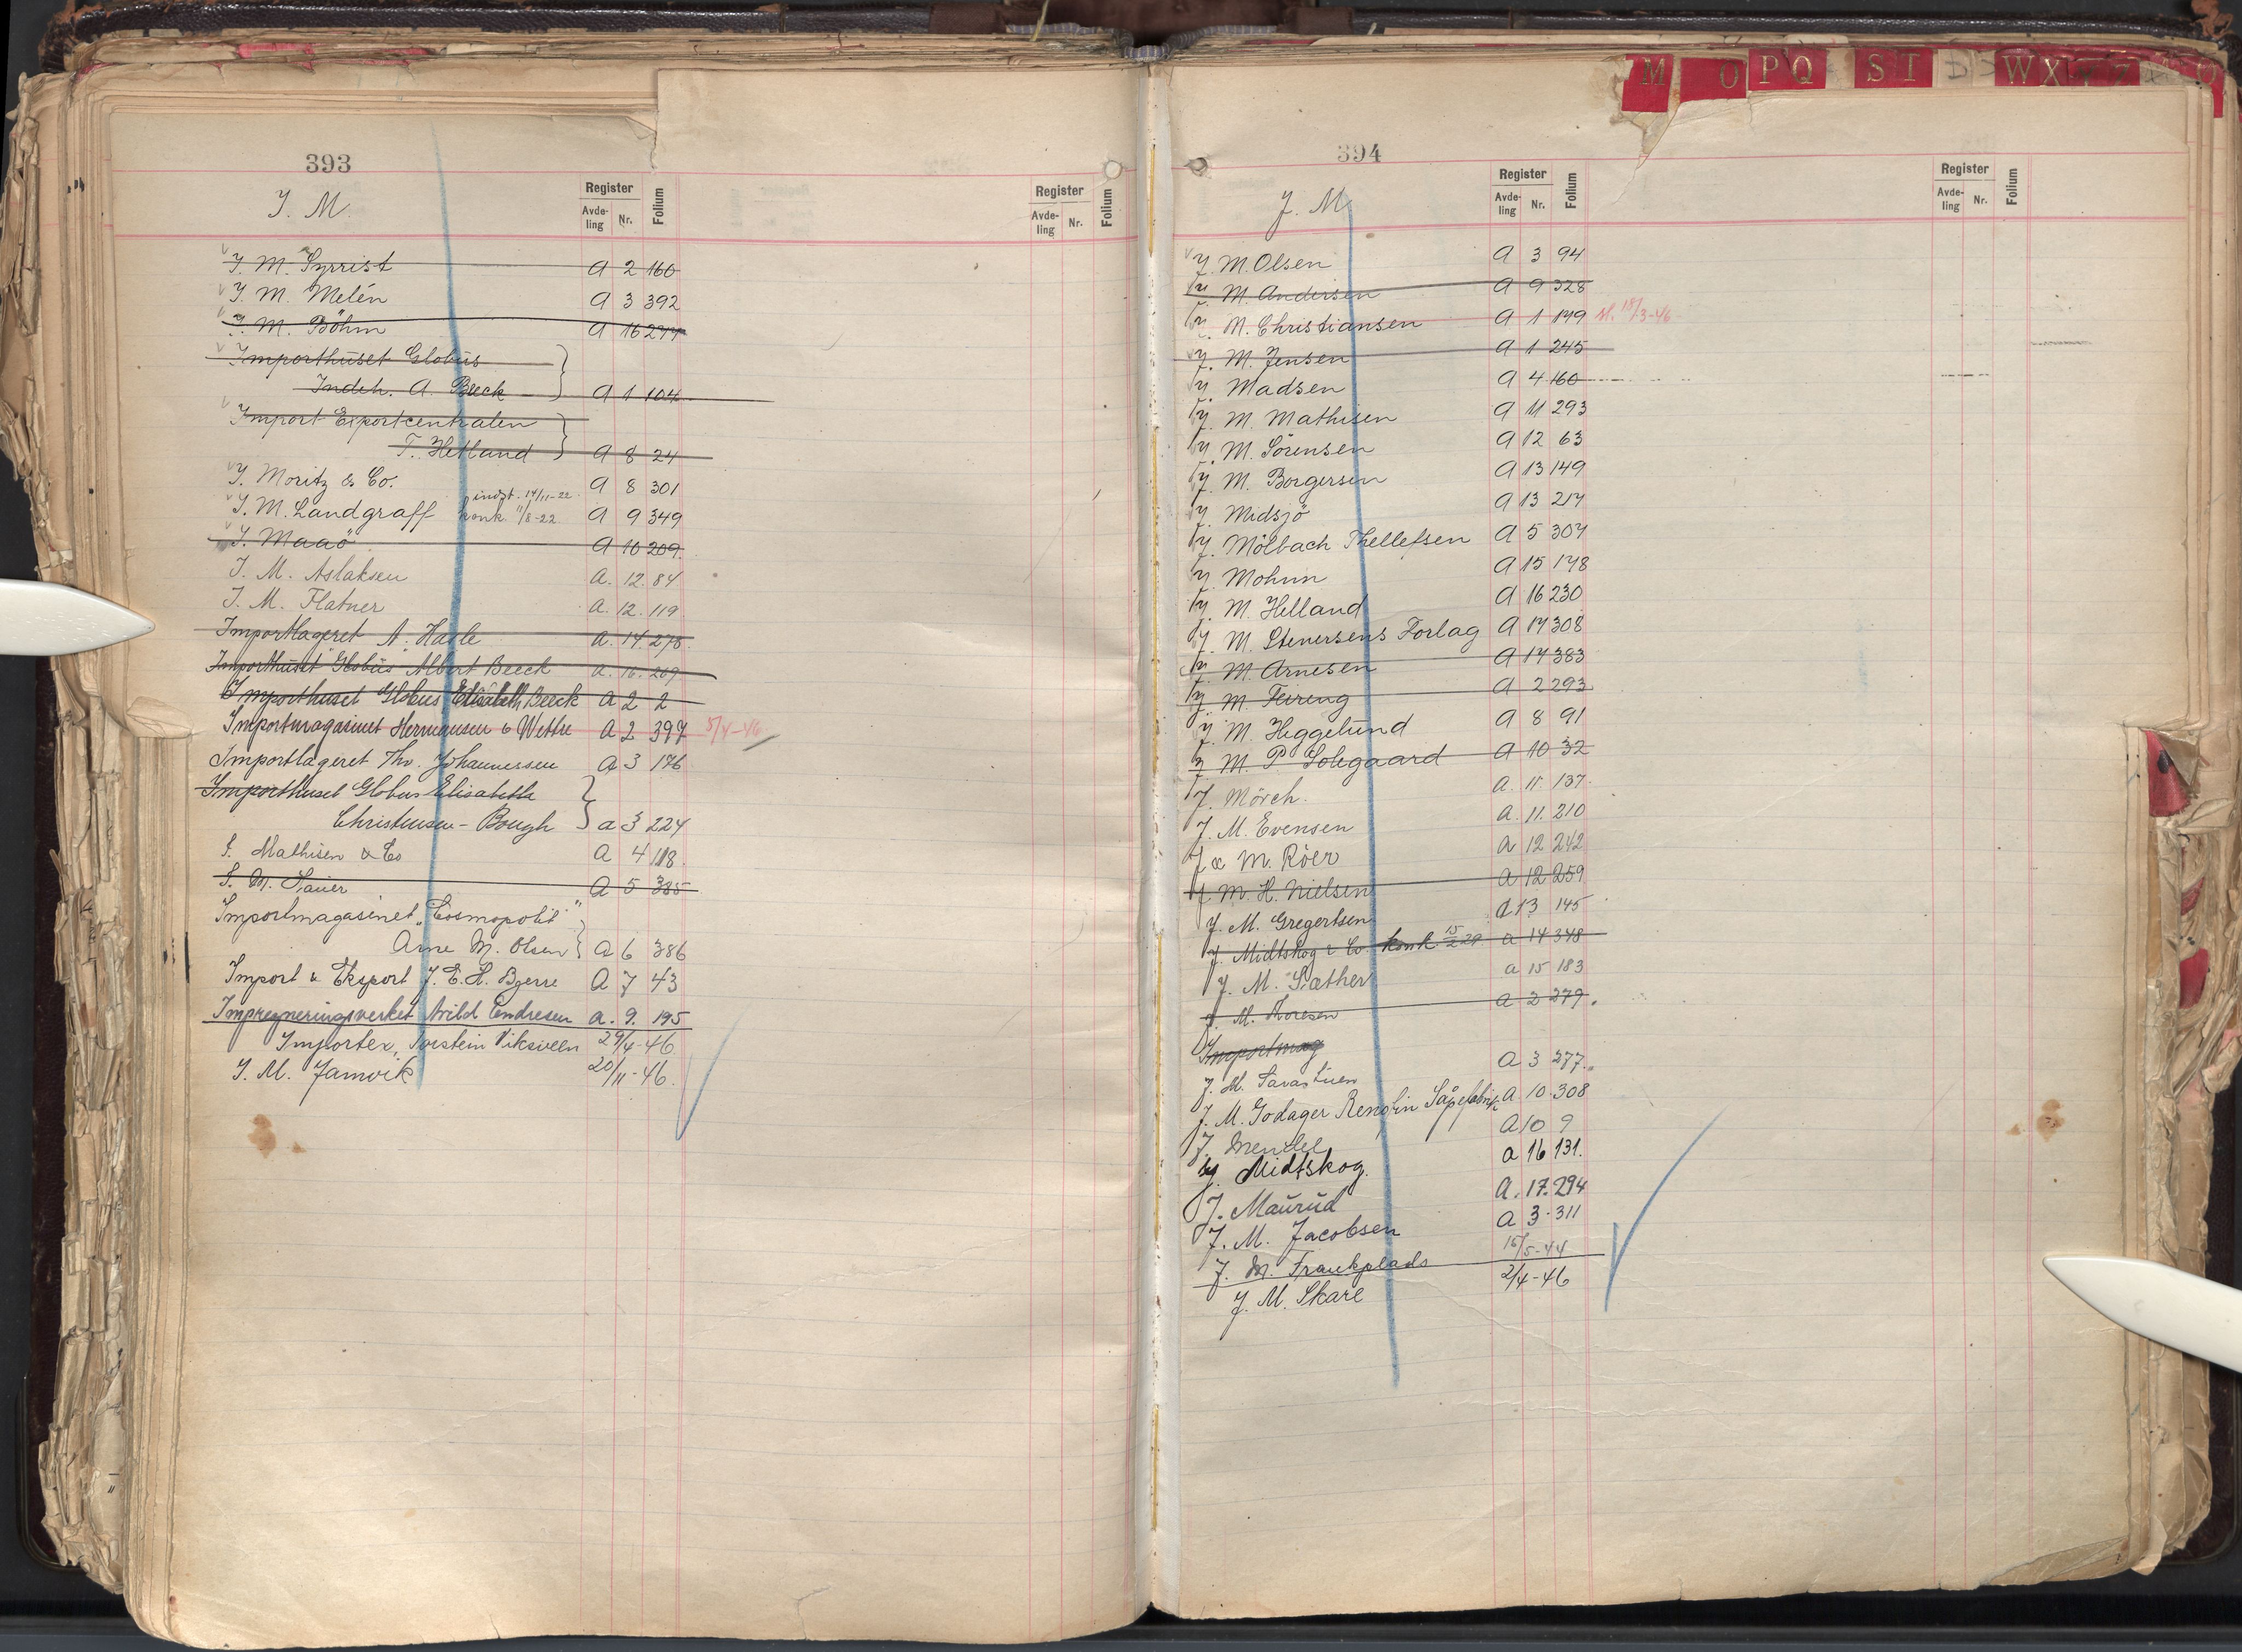 393
I. M.
Register
Avde-
ling
Nr.
Folium
Register
Avde-
ling
Nr.
Folium
I. M. Syrrist A 2 160
I. M. Melén A 3 392
I. M. Böhm A 16 277
Importhuset Globus
Indeh. A. Beeck A 1 104
Import-Exportcentralen
T. Hetland A 8 24
I. Moritz & Co. A 8 301
indgt. 14/11-22
I. M. Landgraff konk. 11/8-22 A 9 349
I. Maaö A 10 209
I. M. Aslaksen A. 12. 84
I. M. Flatner A. 12. 119
Importlageret A. Hasle A. 14. 278.
Importhuset Globus Albert Beeck A. 16. 209
Importhuset Globus Elisabeth Beeck A 2 2
Importmagasinet Hermansen & Wethe A 2 397 5/4-46
Importlageret Thv. Johannessen A 3 176
Importhuset Globus Elisabeth
Christensen-Bough a 3 224
I. Mathisen & Co A 4 118.
I. M. A 5 385
Importmagasinet „Cosmopolit"
Arne M. Olsen A 6 386
Import & Eksport J. E. H. Bjerre A 7 43
Impregneringsverket Arild Endresen a. 9. 195
Importex, Torstein 29/4-46
I. M. Jamvik 20/11-46.
394
J. M.
Register
Avde-
ling
Nr.
Folium
Register
Avde-
ling
Nr.
Folium
M O P Q S T W X
J. M. Olsen A 3 94
J. M. Andersen A 9 328
J. M. Christiansen A 1 149 sl. 18/3-46
J. M. Jensen A 1 245
J. Madsen A 4 160
J. M. Mathisen A 11 293
J. M. Sörensen A 12 63
J. M. Borgersen A 13 149
J. Midsjö A 13 217
J. Mölbach Thellefsen A 5 307
J. Mohnn A 15 178
J. M. Helland A 16 230
J. M. Stenersens Forlag A 17 308
J. M. Arnesen A 17 383
J. M. Feiring A 2 293
J. M. Heggelund A 8 91
J. M. P. Solegaard A 10 32
J. Mörch. A. 11. 137.
J. M. Evensen A. 11. 210
J & M. Röer A 12 242
J. M. H. Nielsen A 12 259
J. M. Gregertsen A 13 145
J. Midtskog & Co. konk. 15/2 29 a 14 348
J. M. Sæther a 15 183
J. M. Thoresen a 2 279.
Importmag
J. M. Tavastuen A 3 277.
J. M. Godager Renolin Såpefabrik A 10 308
J. Mendel A 10 9
J. Midtskog. a 16 131.
J. Maurud A. 17. 294
J. M. Jacobsen A 3 311
J. M. Frankplads 16/5-44
J. M. Skare 2/4-46